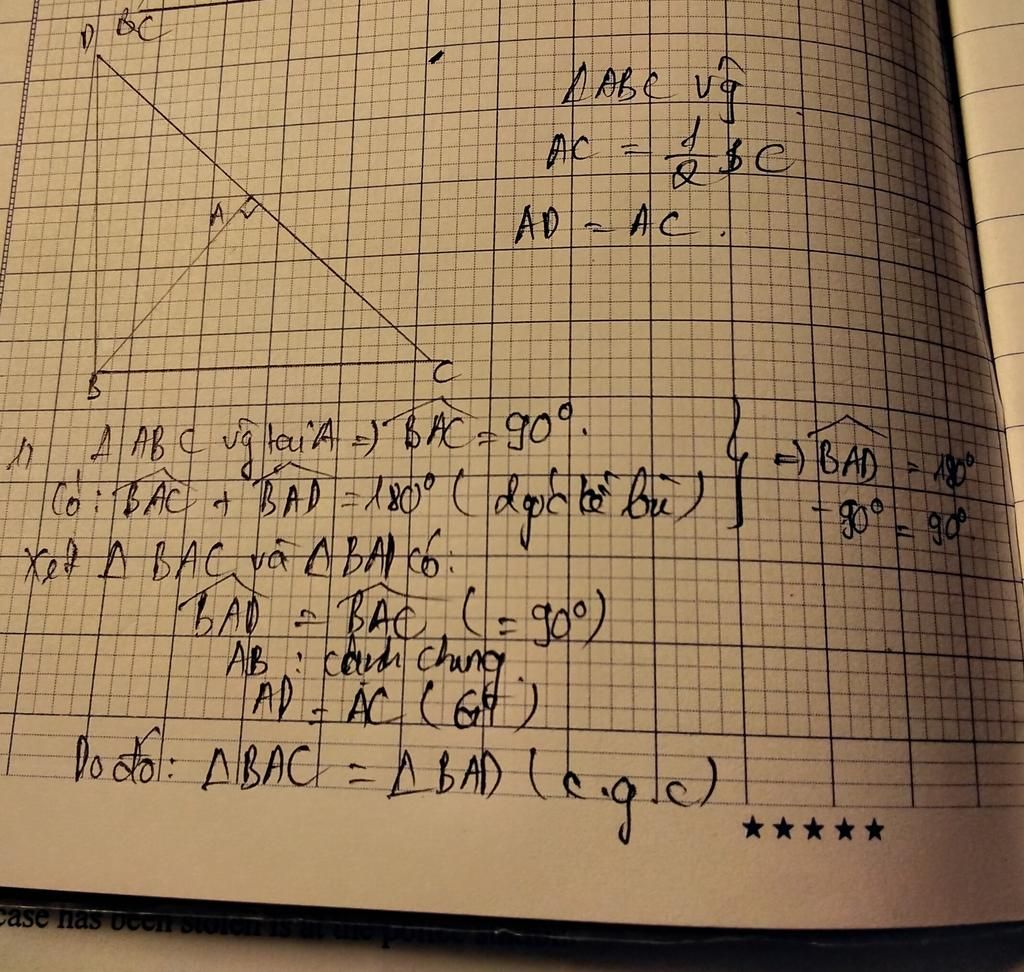 D BC
A
B
C
Δ ABC vg̑
AC = 1/2 BC
AD = AC.
1) Δ ABC vg̑ tại A => BAC = 90°.
Có: BAC + BAD = 180° ( 2 góc kề bù )
=> BAD = 180°
- 90° = 90°
Xét Δ BAC và Δ BAD có:
BAD = BAC ( = 90°)
AB : cạnh chung
AD = AC ( GT )
Do đó: Δ BAC = Δ BAD ( c.g.c )
★★★★★
case has been stolen is at the police station.